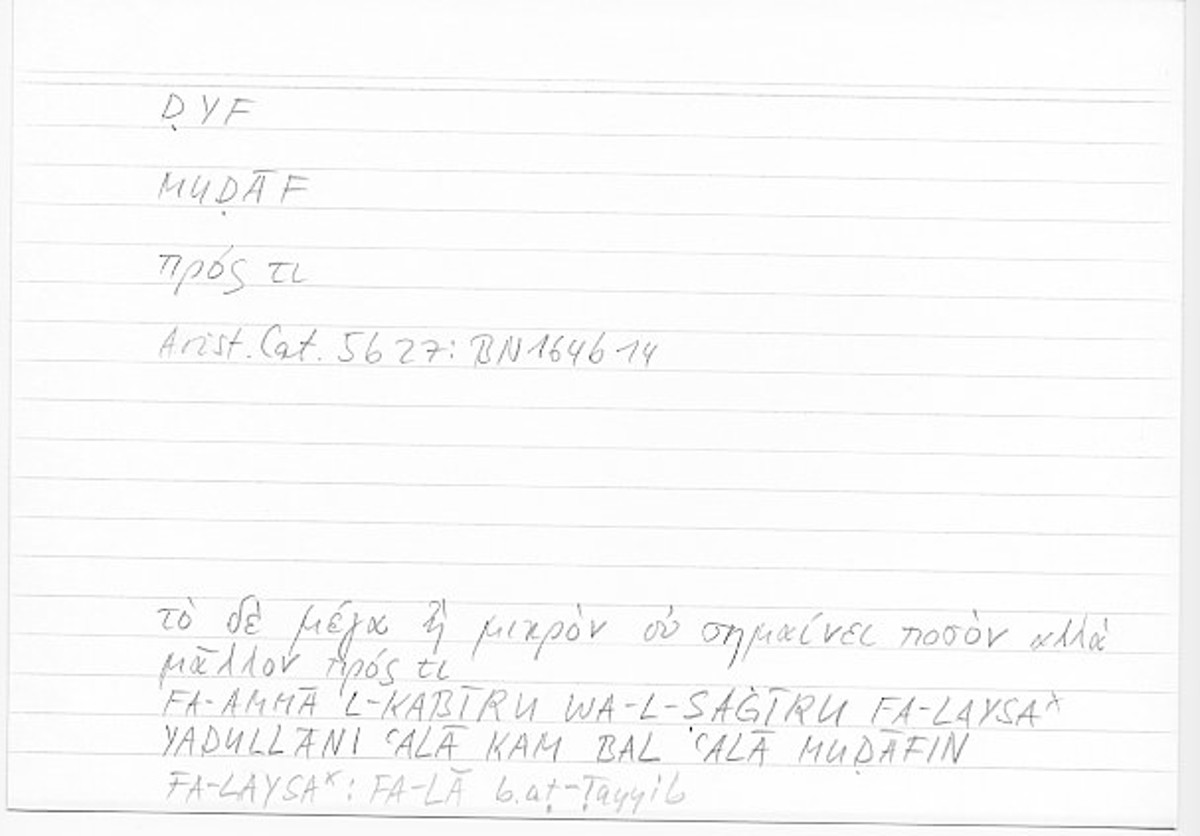 ḌYF
MUḌĀF
πρός τι
Arist. Cat. 5b27: BN 164b14
τὸ δὲ μέγα ἢ μικρὸν οὐ σημαίνει ποσὸν ἀλλὰ
μᾶλλον πρός τι
FA-AMMĀ L-KABĪRU WA-L-ṢAĠĪRU FA-LAYSAˣ
YADULLĀNI ʿALĀ KAM BAL ʿALĀ MUḌĀFIN
FA-LAYSAˣ: FA-LĀ b. aṭ-Ṭayyib